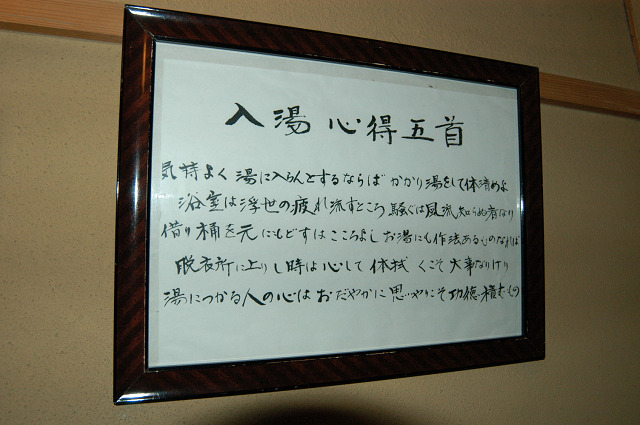 入湯心得五首
気持よく湯に入らんとするならばかかり湯をして体清めよ
浴室は浮世の疲れ流すところ騒ぐは風流知らぬ者なり
借り桶を元にもどすはこころよしお湯にも作法あるものなれば
脱衣所に上りし時は心して体拭くこそ大事なりけり
湯につかる人の心はおだやかに思いやりこそ功徳積むもの